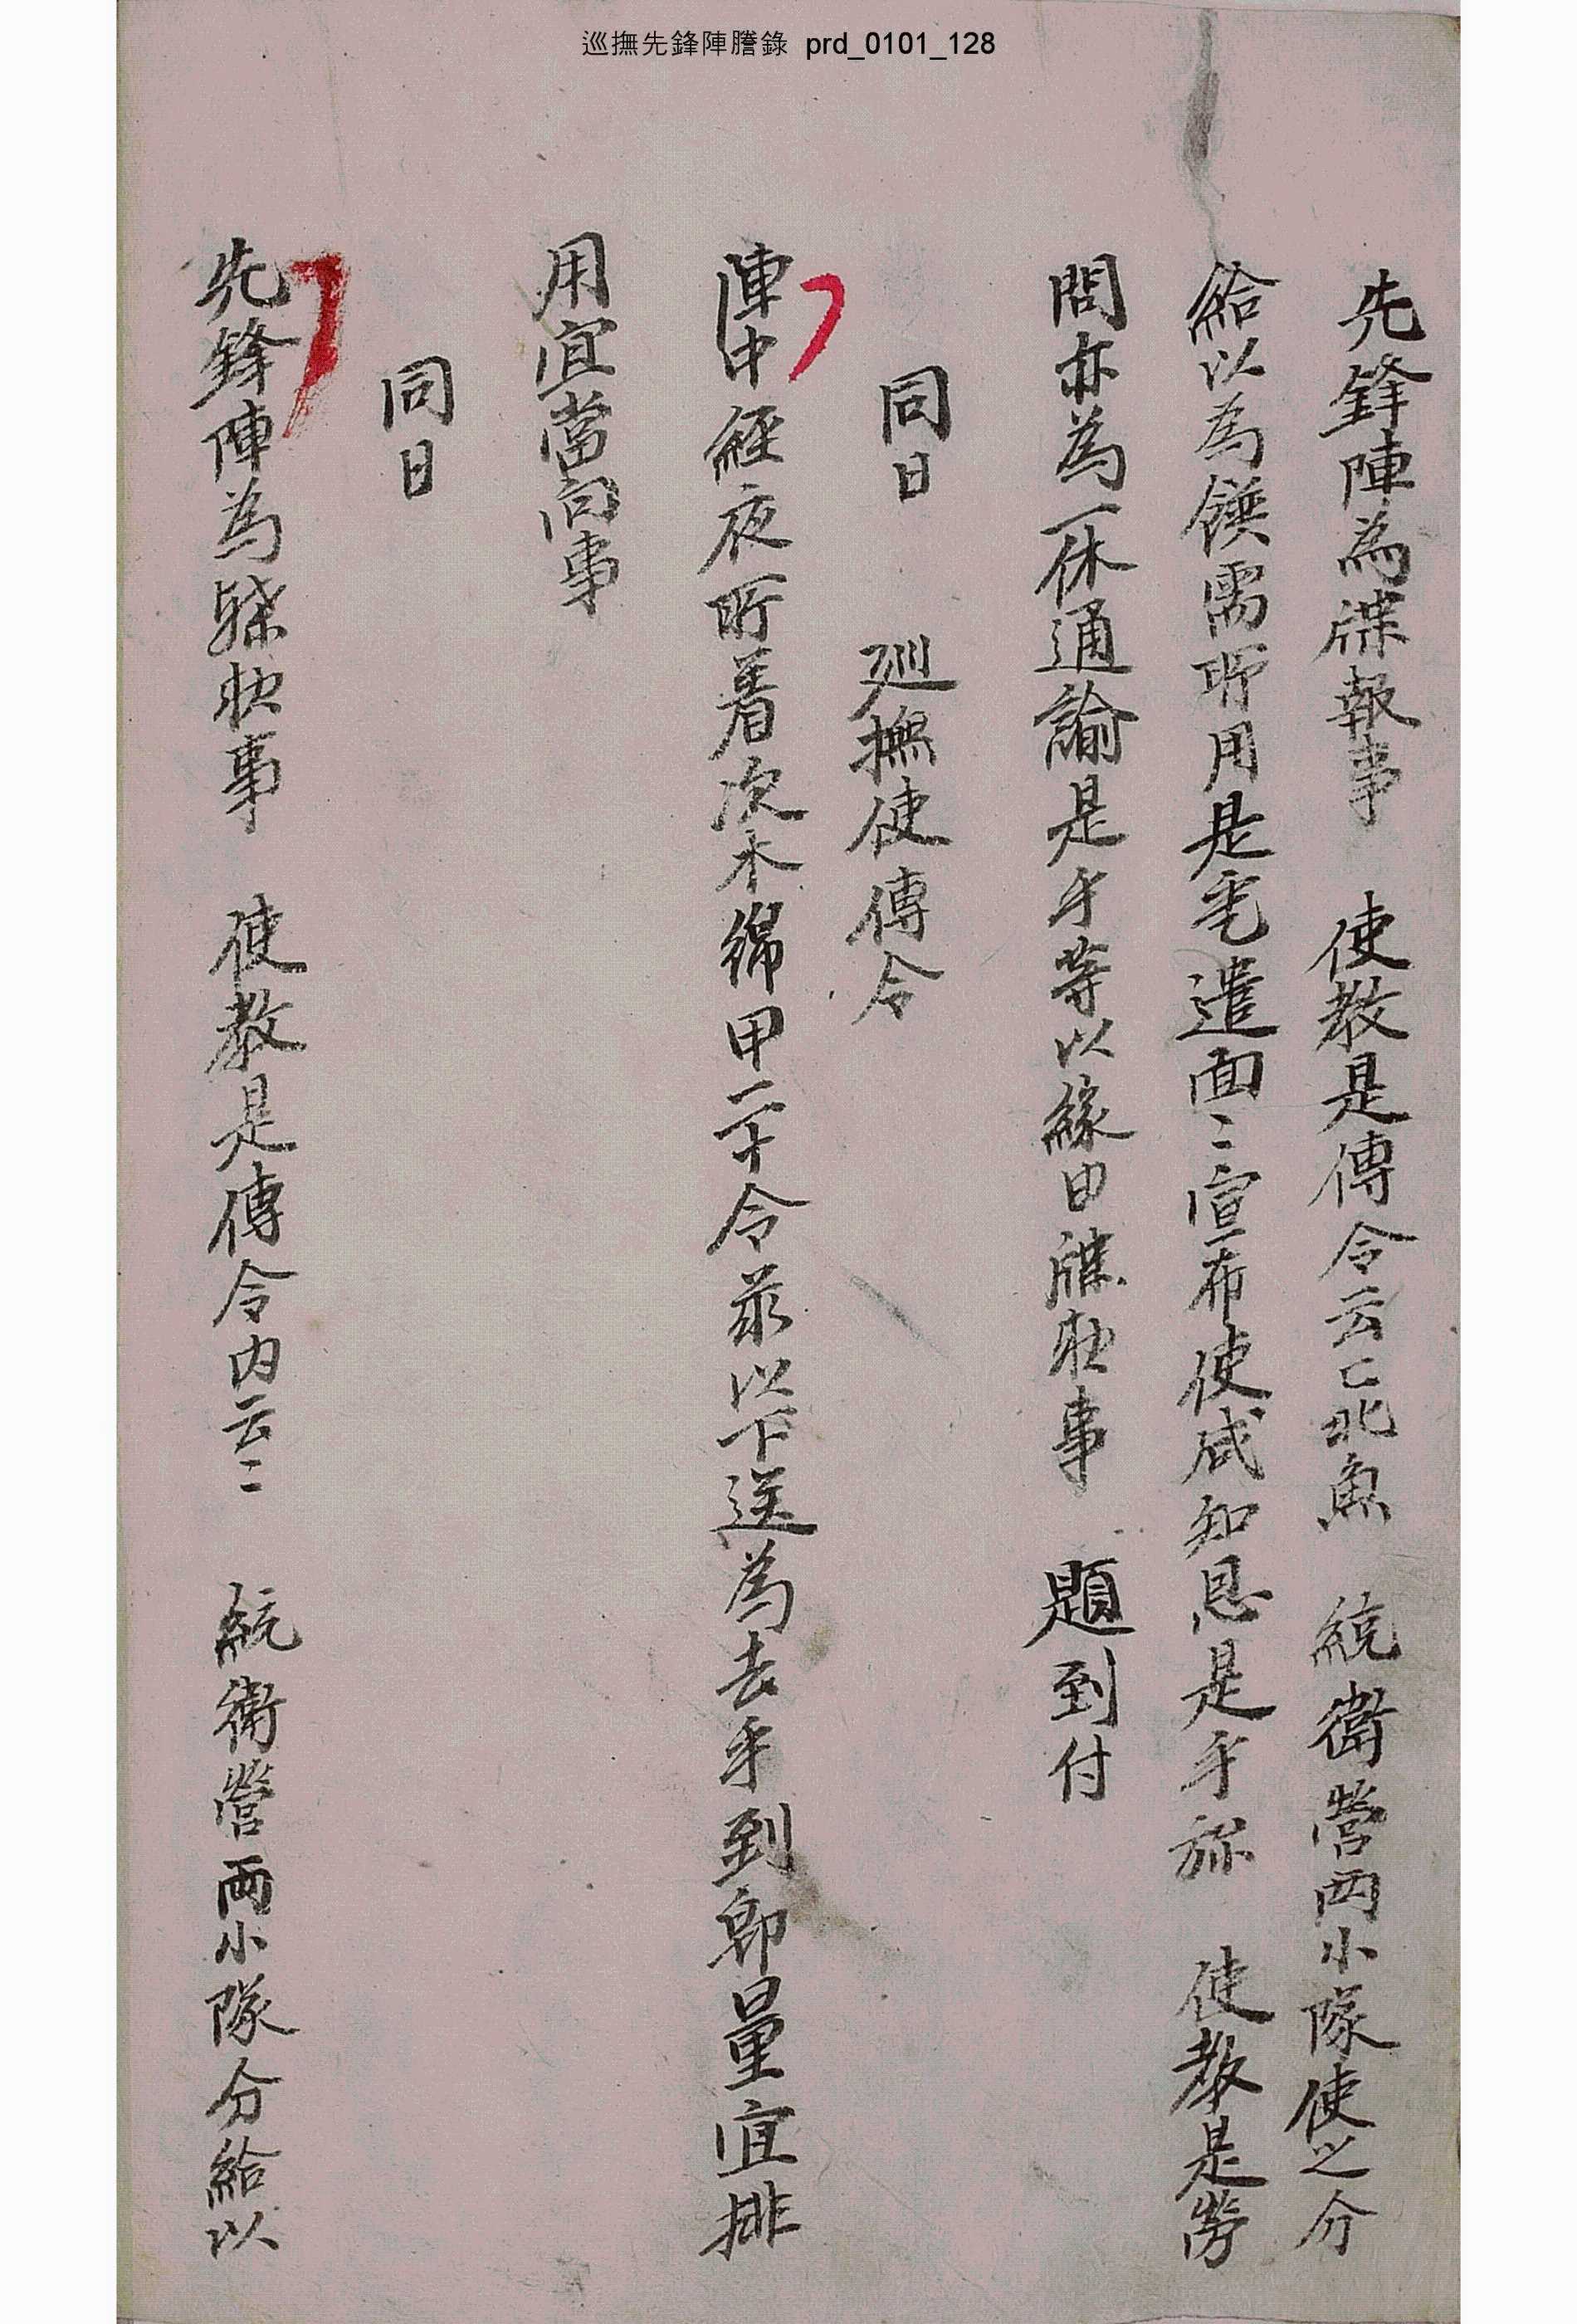 巡撫先鋒陣謄錄 prd_0101_128
先鋒陣為牒報事 使教是傳令云〻北魚 統衛營兩小隊使之分
給以為饌需所用是乎遣面〻宣布使咸知恩是乎旀 使教是勞
問亦為一体通諭是乎等以緣由牒狀事 題到付
同日 廵撫使傳令
陣中經夜所着次木綿甲二十令茲以下送為去乎到卽量宜排
用宜當向事
同日
先鋒陣為牒狀事 使教是傳令內云〻 統衛營兩小隊分給以